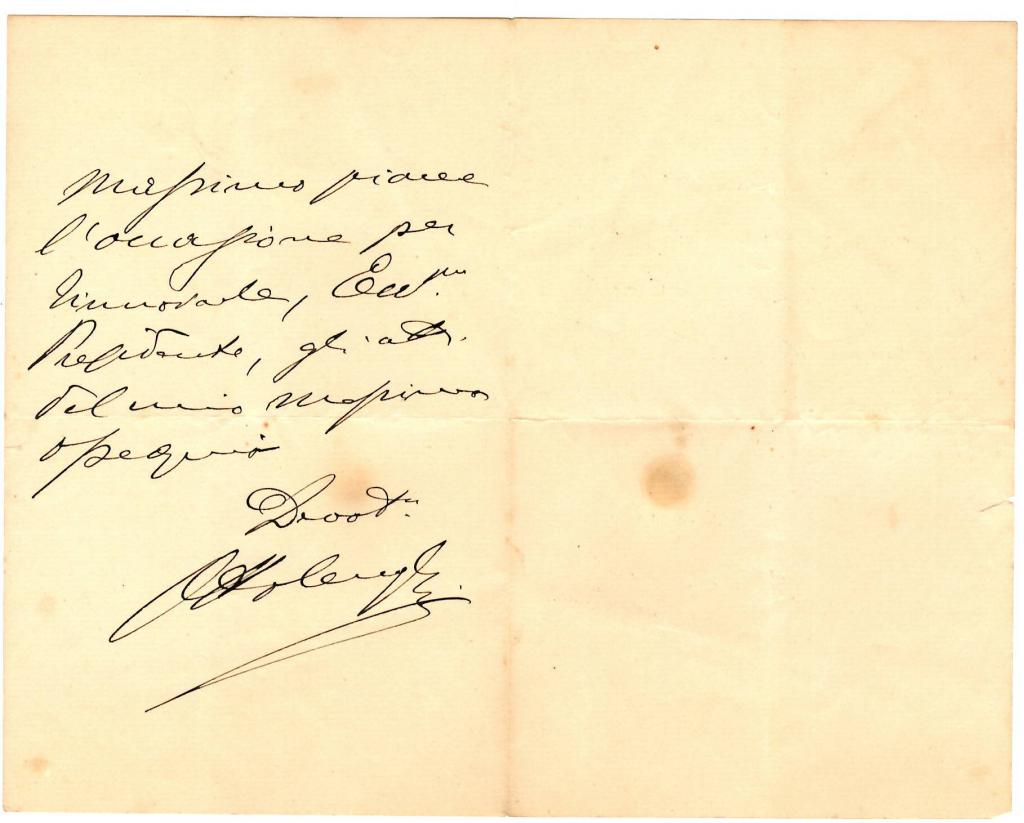 massimo piacere
l'occasione per
rinnovarle, Ecc.mo
Presidente, gli atti
del mio massimo
ossequio
Devot.mo
Ottolenghi